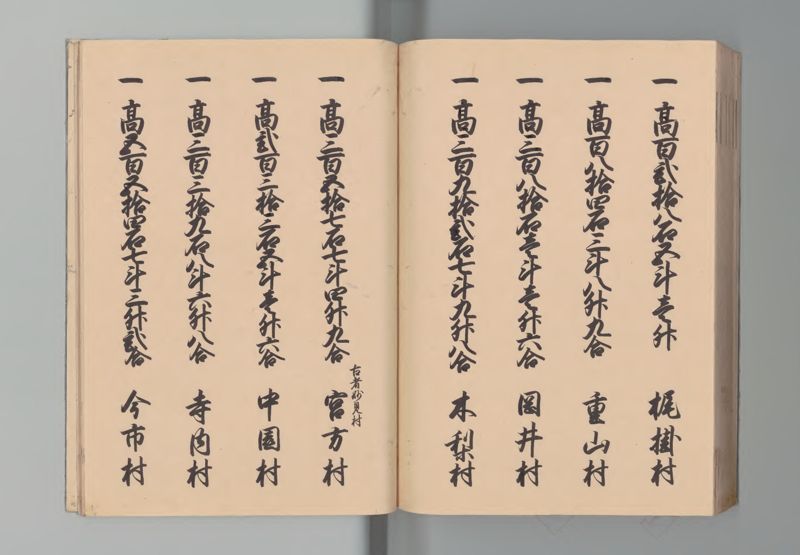 一高百弐拾八石五斗壱升 梶掛村
一高百八拾四石三斗八升九合 重山村
一高三百八拾石壱斗壱升六合 岡井村
一高三百九拾弐石七斗九升八合 木梨村
古者妙見村
一高三百五拾七石七斗四升九合 宮方村
一高弐百三拾三石五斗壱升六合 中園村
一高三百三拾九石八斗六升八合 寺内村
一高五百五拾四石七斗三升弐合 今市村